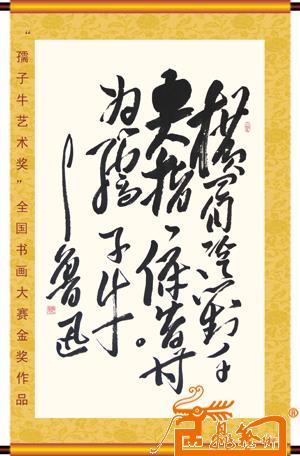 横眉冷对千
夫指，俯首甘
为孺子牛。
鲁迅
“孺子牛艺术奖”全国书画大赛金奖作品